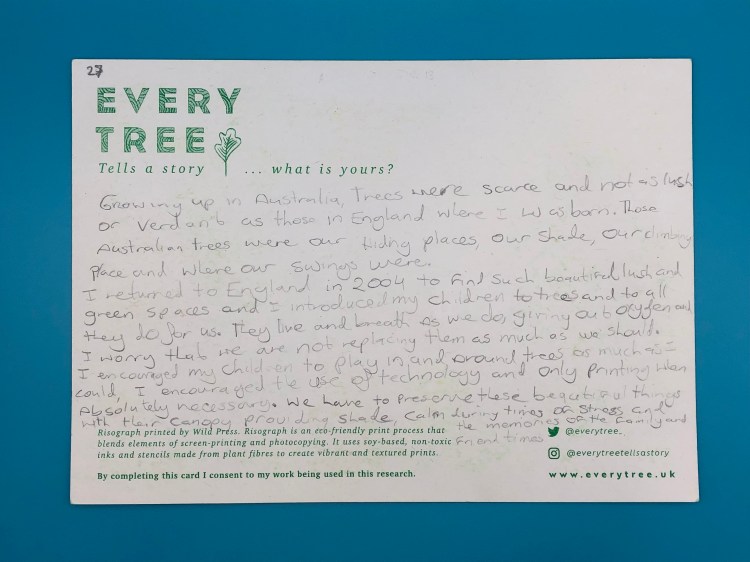 27
EVERY
TREE
Tells a story ... what is yours?
Growing up in Australia, Trees were scarce and not as lush
or verdant as those in England where I was born. Those
Australian trees were our hiding places, our shade, our climbing
place and where our swings were.
I returned to England in 2004 to find such beautiful lush and
green spaces and I introduced my children to trees and to all
they do for us. They live and breath as we do, giving out oxygen and
I worry that we are not replacing them as much as we should.
I encouraged my children to play in and around trees as much as I
could, I encouraged the use of technology and only printing when
absolutely necessary. We have to preserve these beautiful things
with their canopy providing shade, calm during times of stress and
the memories of the family and
friend times
Risograph printed by Wild Press. Risograph is an eco-friendly print process that
blends elements of screen-printing and photocopying. It uses soy-based, non-toxic
inks and stencils made from plant fibres to create vibrant and textured prints.
By completing this card I consent to my work being used in this research.
@everytree_
@everytreetellsastory
www.everytree.uk